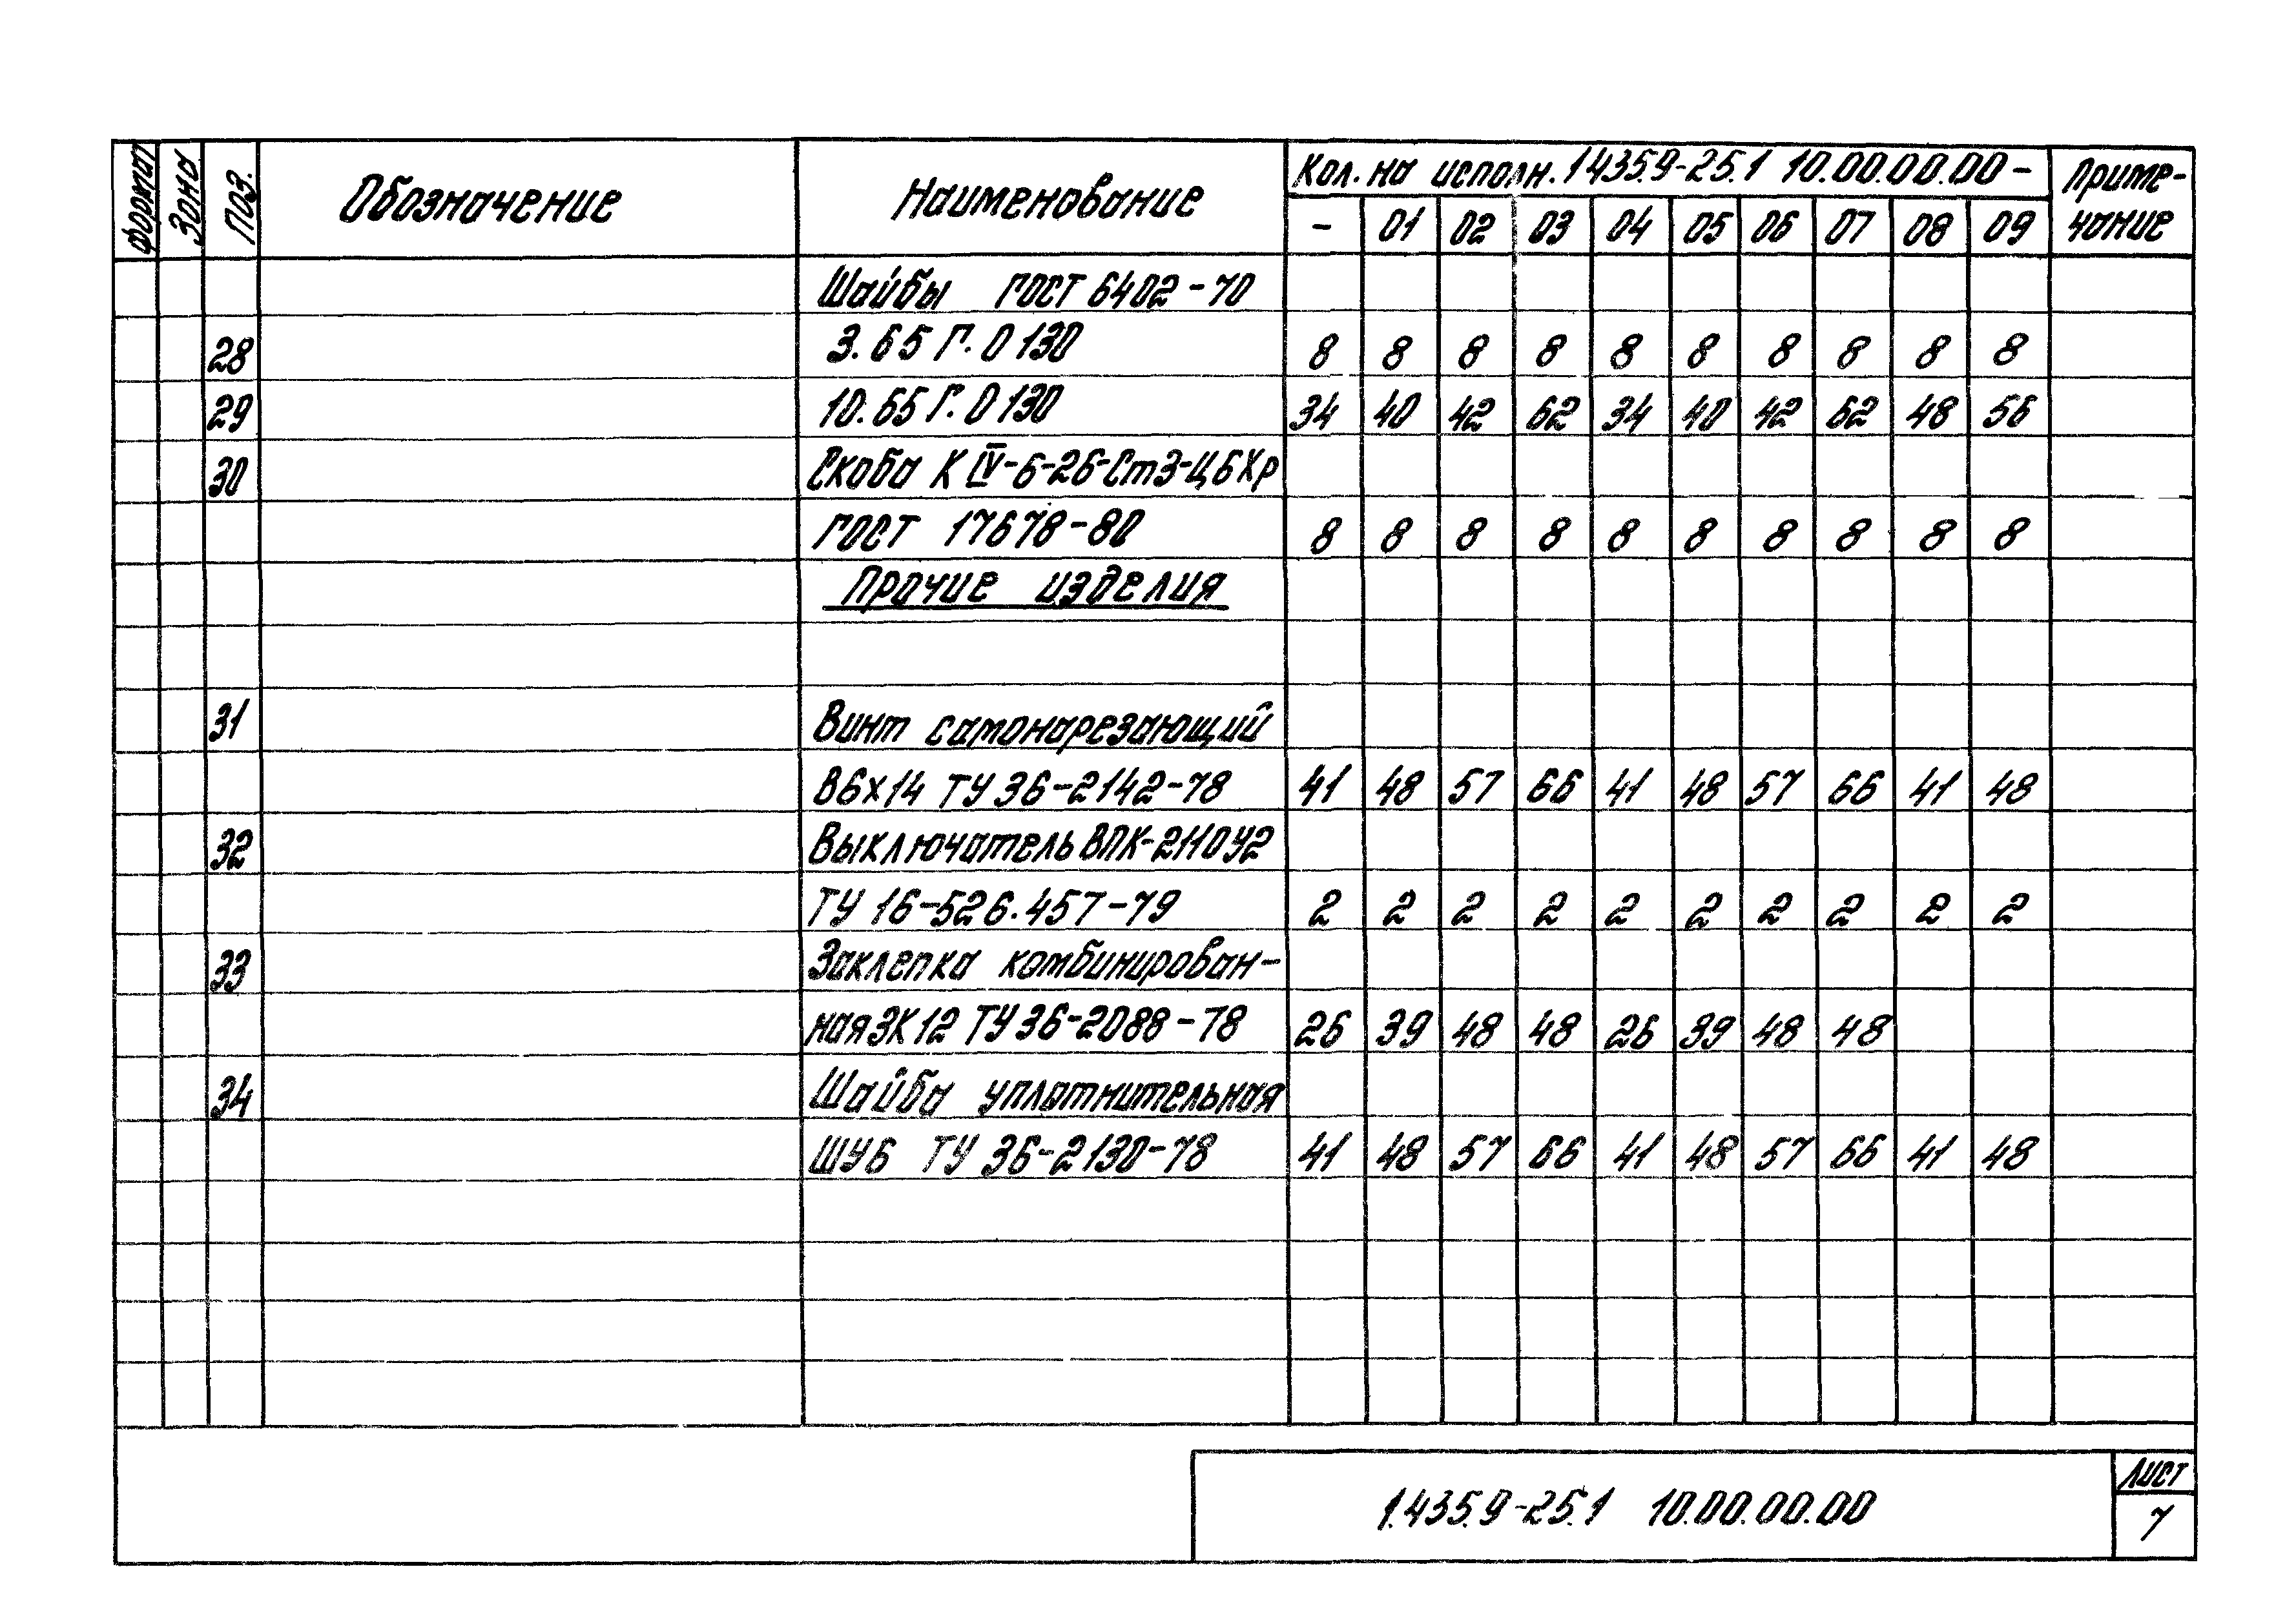 Формат Зона Поз. Обозначение Наименование Кол. на исполн. 1.435.9-25.1 10.00.00.00- Приме-
- 01 02 03 04 05 06 07 08 09 чание
Шайбы ГОСТ 6402-70
28 3.65Г.0130 8 8 8 8 8 8 8 8 8 8
29 10.65Г.0130 34 40 42 62 34 40 42 62 48 56
30 Скоба К IV-6-26-Ст3-Ц6Хр
ГОСТ 17678-80 8 8 8 8 8 8 8 8 8 8
Прочие изделия
31 Винт самонарезающий
В6х14 ТУ 36-2142-78 41 48 57 66 41 48 57 66 41 48
32 Выключатель ВПК-2110У2
ТУ 16-526.457-79 2 2 2 2 2 2 2 2 2 2
33 Заклепка комбинирован-
ная ЗК12 ТУ 36-2088-78 26 39 48 48 26 39 48 48
34 Шайба уплотнительная
ШУ6 ТУ 36-2130-78 41 48 57 66 41 48 57 66 41 48
1.435.9-25.1 10.00.00.00
Лист
7